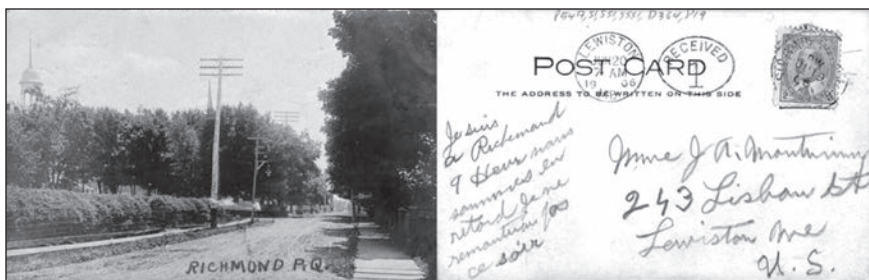 RICHMOND P.Q.
LEWISTON
JUN 20
AM
19 06
RECEIVED
1
POST CARD
THE ADDRESS TO BE WRITTEN ON THIS SIDE
Je suis
a Richemond
9 Heur nous
sommes en
retard Je ne
pas
ce soir
Mme J A.
243 Lisbon St
Lewiston Me
U.S.